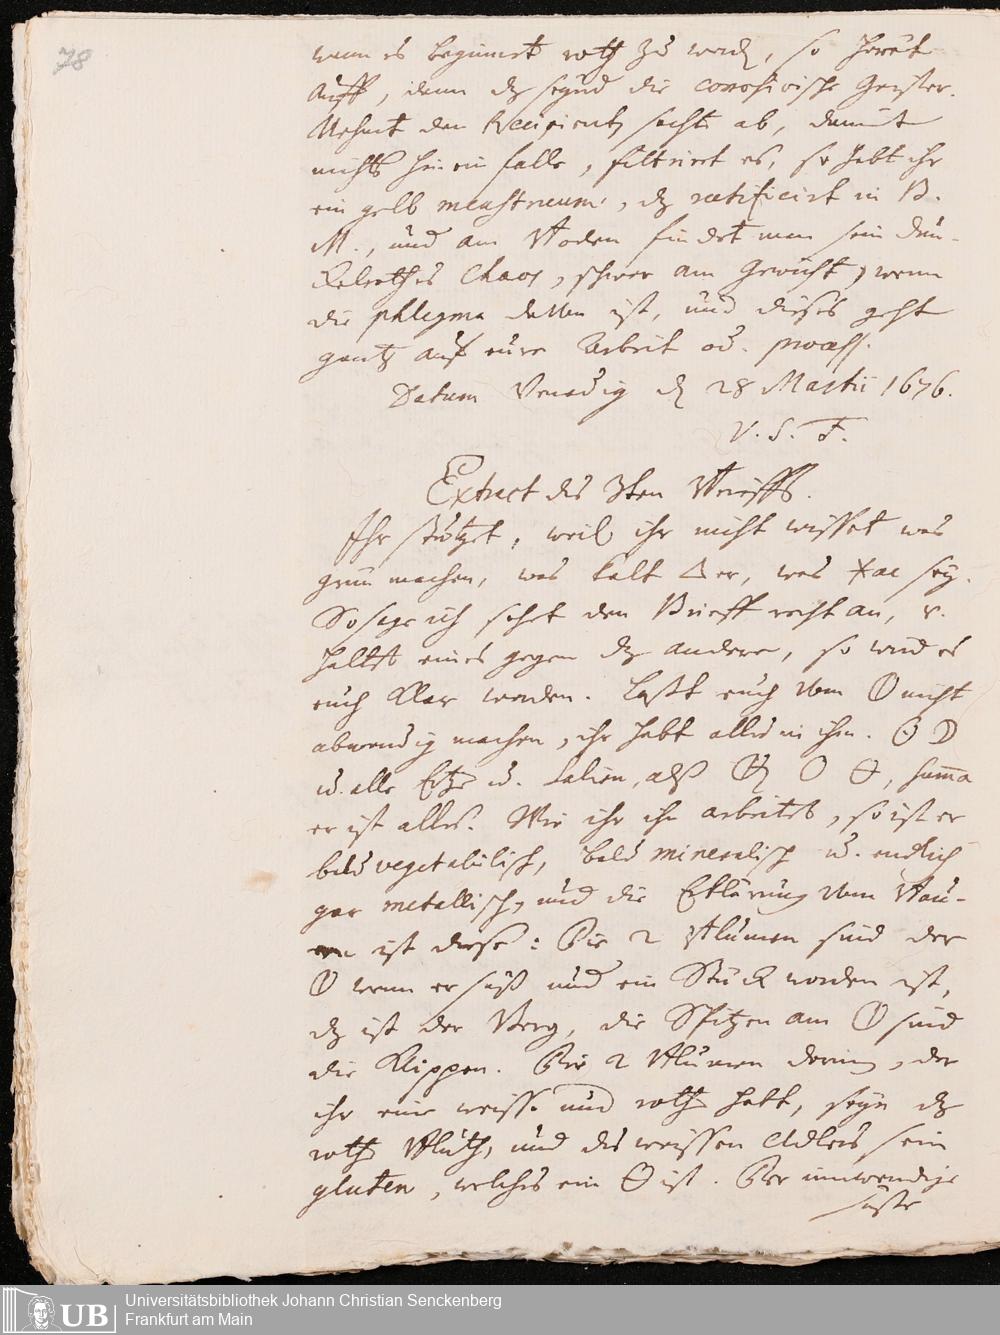 78
wenn es beginnet roth zu werd, so höret
auff, denn dz seynd die corrosivische Geister.
Nehmt den Recipient sacht ab, damit
nichts hinein falle, filtriert es, so habt ihr
ein gelb menstruum, dz rectificirt in B.
M., und am Boden findet man sein dun-
kelrothes Chaos, schwer am Gewicht, wenn
die phlegma davon ist, und dieses geht
gantz auf eure Arbeit od. process.
Datum Venedig d 28 Martii 1676.
V. S. F.
Extract des 3ten Brieffs.
Ihr stutzet, weil ihr nicht wisset was
grün machen, was kalt △er, was sey.
So sehet den Brieff recht an, v.
haltet eines gegen dz andere, so wird es
euch klar werden. Last euch vom nicht
abwendig machen, ihr habt alles in ihm. ☽
u. alle Ertze u. Salien, alß summa
er ist alles. Wie ihr ihn arbeitet, so ist er
bald vegetabilisch, bald mineralisch u. endlich
gar metallisch, und die Erklärung vom Bau-
ern ist diese: Die 2 Blumen sind der
wenn er süß und ein Stück worden ist,
dz ist der Berg, die Spitzen am sind
die Klippen. Die 2 Blumen darin, der
ihr eine weisse und rothe habt, seyn dz
rothe Bluth, und des weissen Adlers sein
gluten, welches ein ist. Der inwendige
süsse
UB
Universitätsbibliothek Johann Christian Senckenberg
Frankfurt am Main